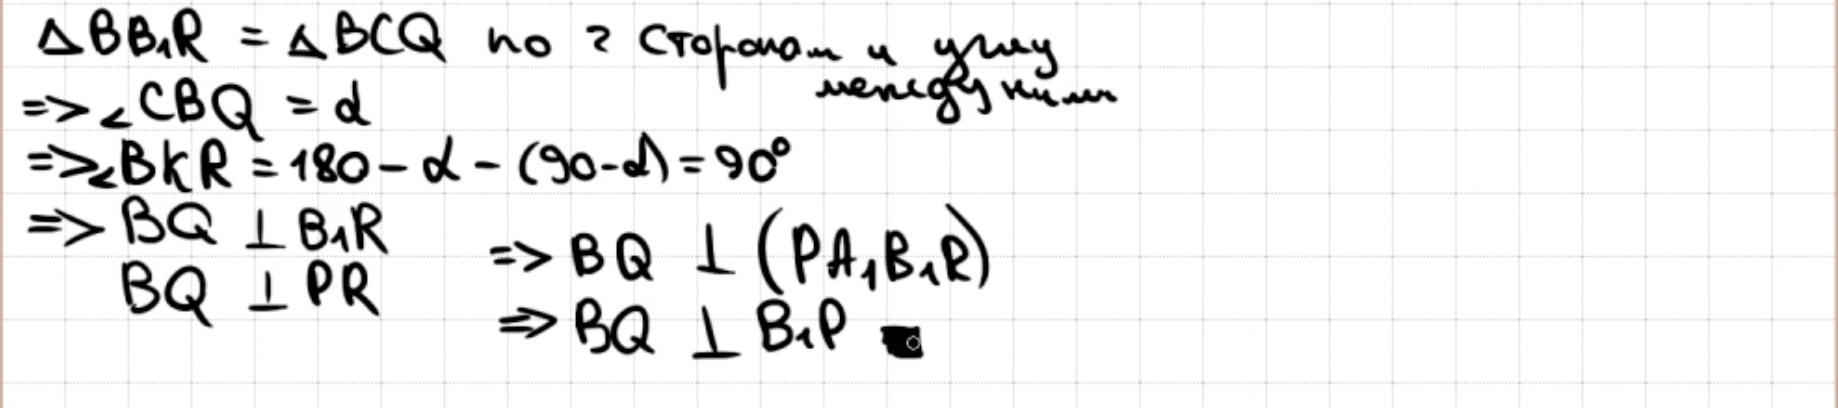 △BB₁R = △BCQ по 2 сторонам и углу
между ними
=> ∠CBQ = α
=> ∠BKR = 180 - α - (90 - α) = 90°
=> BQ ⊥ B₁R
BQ ⊥ PR
=> BQ ⊥ (PA₁B₁R)
=> BQ ⊥ B₁P